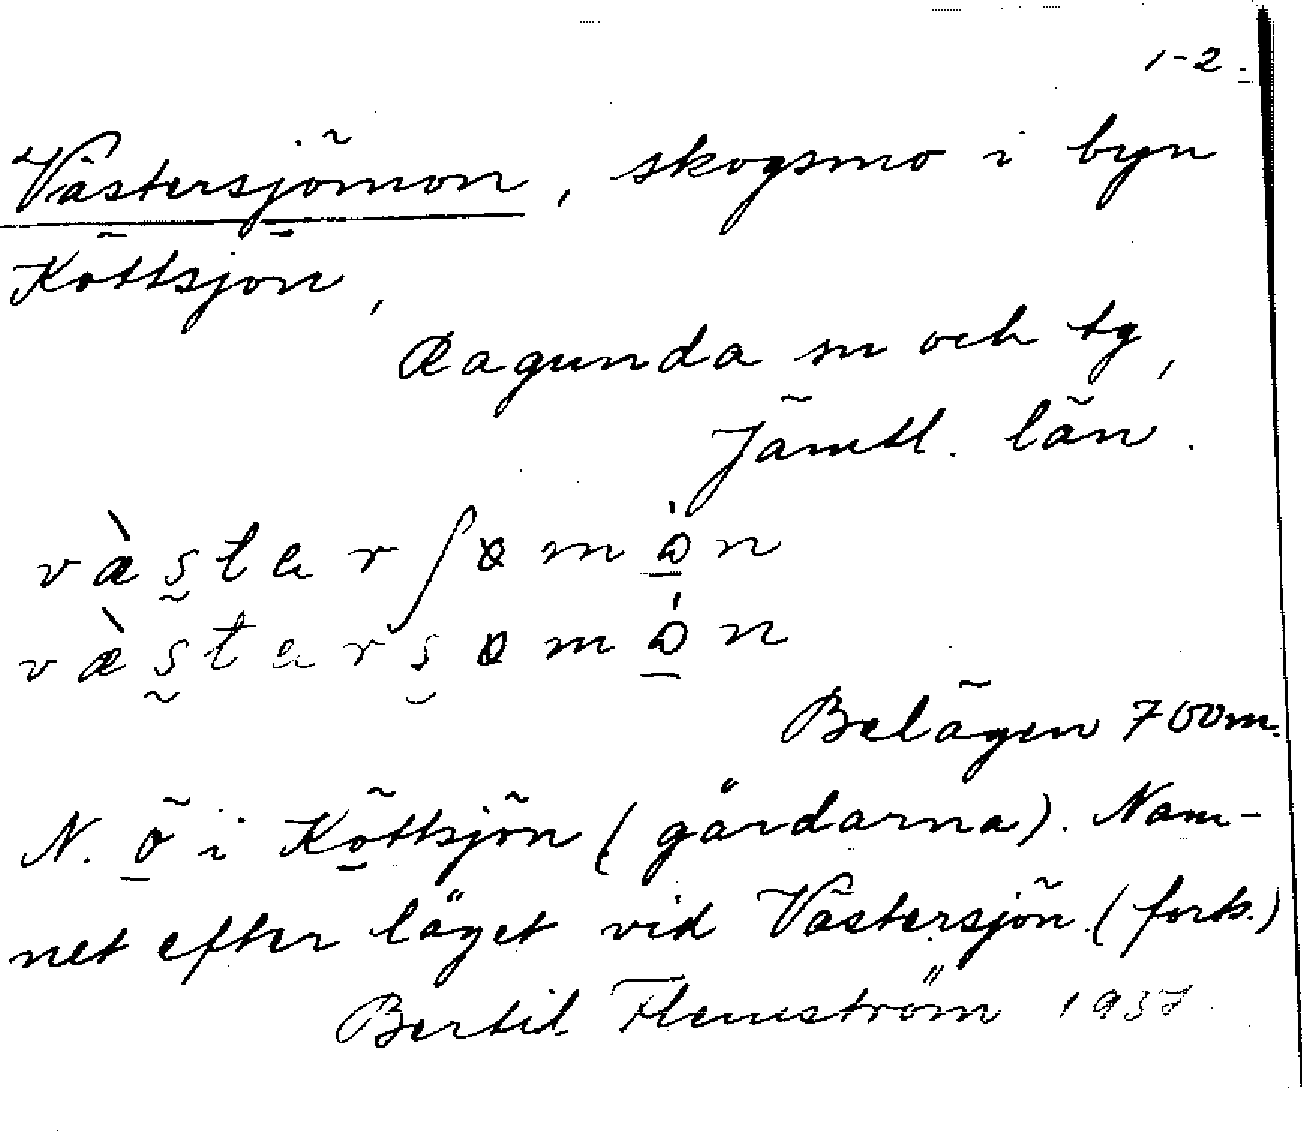 1-2.
Västersjömon, skogsmo i byn
Köttsjön,
Ragunda sn och tg,
Jämtl. län.
v æ̀ s t a r ʃ ɵ m ó n
v æ̀ s t a r s ɵ m ó n
Belägen 700 m.
N. ö i Köttsjön (gårdarna). Nam-
net efter läget vid Västersjön (forts.)
Bertil Flemström 1937